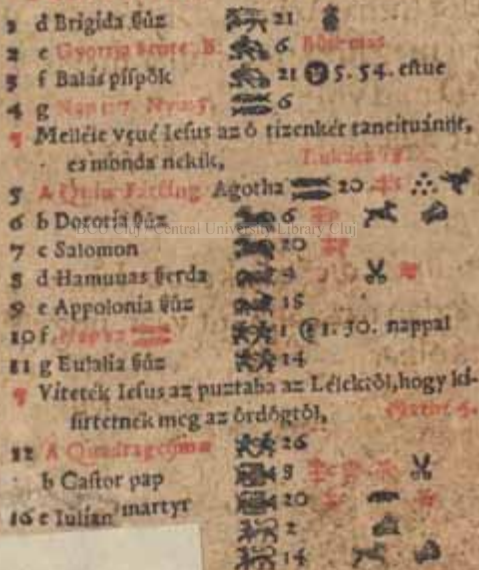 1 d Brigida ßűz 21
2 e Gyortya ßente. B. 6
3 f Balás píſpők 21 5. 54. eſtue
4 g 6
¶ Melléie vęué Ieſus az ő tizenkét tanéituánit,
es monda nékik,
5 A Agotha 20
6 b Dorotia ßűz 6
7 c Salomon 20
8 d Hamuuas ßerda 4
9 e Appolonia ßűz 18
10 f 1 1. 30. nappal
11 g Eulalia ßűz 14
¶ Vitették Ieſus az puztaba az Lélektől, hogy kí-
ſirtetnék meg az ördögtől,
12 A Quadrageſima 26
b Caſtor pap 8
16 e Iulian martyr 20
2
14
BCU Cluj / Central University Library Cluj